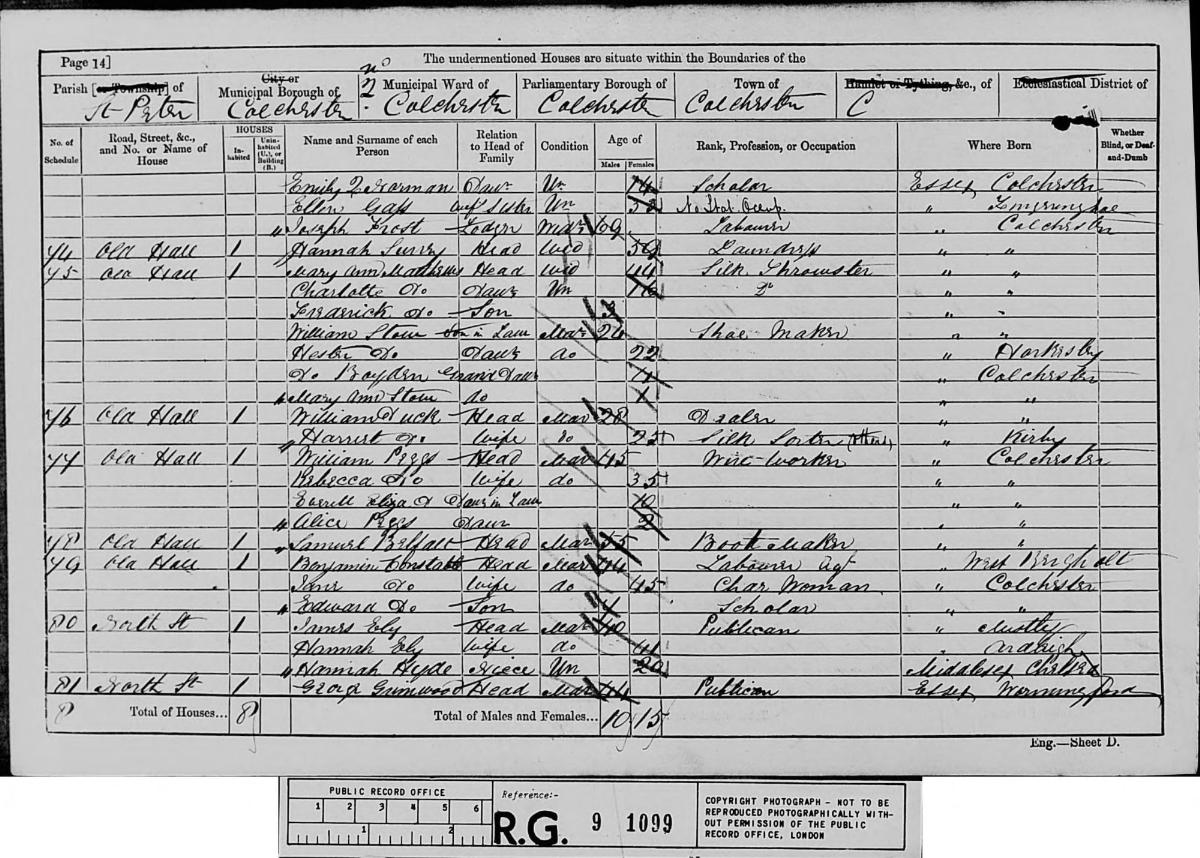 Page 14]
The undermentioned Houses are situate within the Boundaries of the
Parish [or Township] of St Peter
City or Municipal Borough of Colchester
No 2 Municipal Ward of Colchester
Parliamentary Borough of Colchester
Town of Colchester
Hamlet or Tything, &c., of C
Ecclesiastical District of
No. of Schedule
Road, Street, &c., and No. or Name of House
HOUSES
Inhabited
Uninhabited (U.), or Building (B.)
Name and Surname of each Person
Relation to Head of Family
Condition
Age of
Males
Females
Rank, Profession, or Occupation
Where Born
Whether Blind, or Deaf-and-Dumb
Emily Q Norman Daur Un 14 Scholar Essex Colchester
Ellen Gass Sister Un 52 No Stat. Occup. "
Joseph Frost Lodger Widr 69 Labourer " Colchester
74 Old Hall 1 Hannah Surry Head Wid 59 Laundrys " "
75 Old Hall 1 Mary Ann Mathews Head Wid 44 Silk Throwster " "
Charlotte Do Daur Un 16 Do " "
Frederick Do Son " "
William Stow Son in Law Mar 24 Shoe Maker " "
Hester Do Daur do 22 " Horkesley
Do Boyden Grand Daur " Colchester
Mary Ann Stow do " "
76 Old Hall 1 William Tuck Head Mar 28 Dealer " "
Harriet Do Wife do 25 Silk Sorter " Kirby
77 Old Hall 1 William Peggs Head Mar 45 Wire Worker " Colchester
Rebecca Do Wife do 35 " "
Everitt Eliza Daur in Law 10 " "
Alice Peggs Daur 2 " "
78 Old Hall 1 Samuel Belfast Head Mar 55 Boot Maker " "
79 Old Hall 1 Benjamin Constable Head Mar 44 Labourer Agt " West Bergholt
Jane Do Wife do 45 Char Woman " Colchester
Edward Do Son 4 Scholar " "
80 North St 1 James Ely Head Mar 40 Publican " Mistley
Hannah Ely Wife do 41 " Ardleigh
Hannah Hyde Niece Un 20 Middlesex Chelsea
81 North St 1 George Grimwood Head Mar 44 Publican Essex Wormingford
8 Total of Houses... 8 Total of Males and Females... 10 15
Eng.—Sheet D.
PUBLIC RECORD OFFICE
1 2 3 4 5 6
1 2
Reference:-
R.G. 9 1099
COPYRIGHT PHOTOGRAPH - NOT TO BE
REPRODUCED PHOTOGRAPHICALLY WITH-
OUT PERMISSION OF THE PUBLIC
RECORD OFFICE, LONDON